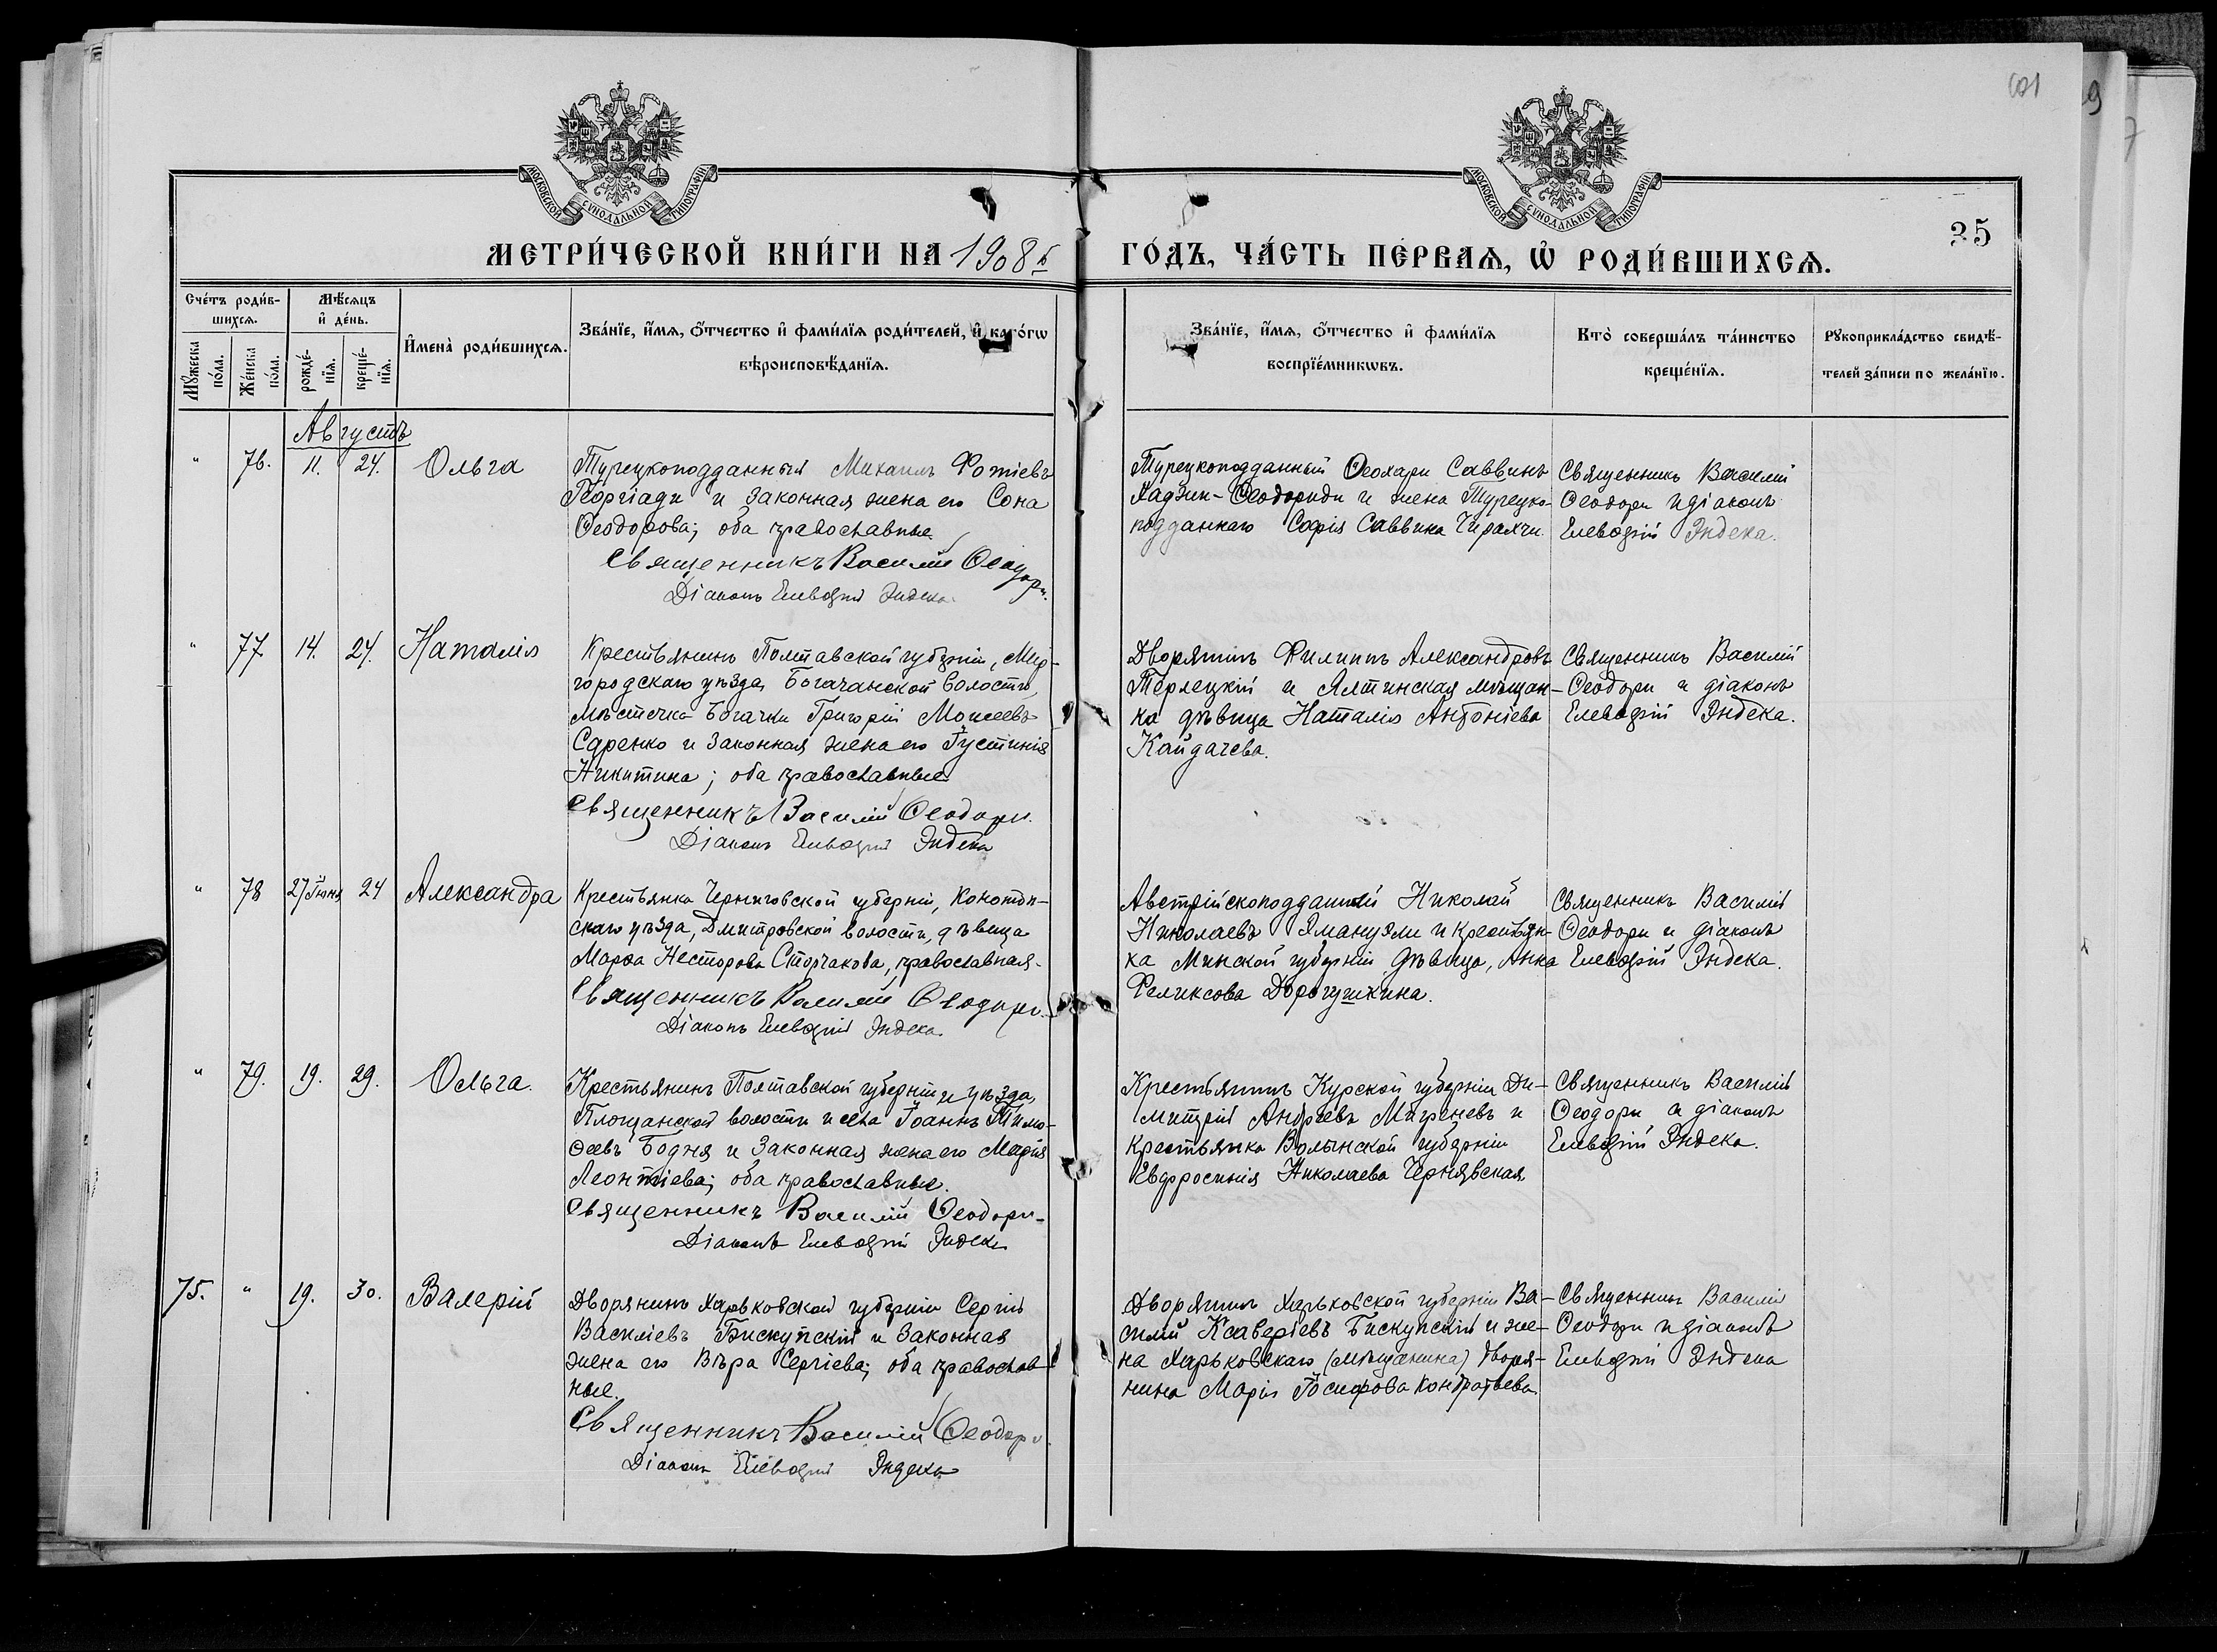 601
9
7
МОСКОВСКОЙ СУНОДАЛЬНОЙ ТИПОГРАФІИ
МОСКОВСКОЙ СУНОДАЛЬНОЙ ТИПОГРАФІИ
35
МЕТРИ́ЧЕСКОЙ КНИ́ГИ НА 1908й ГО́ДЪ, ЧА́СТЬ ПЕ́РВАѦ, Ѡ҆ РОДИ́ВШИХСѦ.
Сче́тъ роди́в-
шихсѧ.
Мꙋ́жеска по́ла.
Же́нска по́ла.
Мѣ́сѧцъ
и҆ де́нь.
рожде́-
нїѧ.
креще́-
нїѧ.
И҆мена̀ роди́вшихсѧ.
Зва́нїе, и҆́мѧ, ѻ҆́тчество и҆ фами́лїѧ роди́телей, и҆ како́гѡ
вѣроисповѣ́данїѧ.
Зва́нїе, и҆́мѧ, ѻ҆́тчество и҆ фами́лїѧ
воспрїе́мникѡвъ.
Кто̀ соверша́лъ та́инство
креще́нїѧ.
Рꙋкоприкла́дство свидѣ́-
телей за́писи по жела́нїю.
Августъ
" 76. 11. 24. Ольга
Турецкоподданный Михаилъ Фотіевъ
Георгіади и законная жена его Сона
Ѳеодорова; оба православные.
Священникъ Василій Ѳеодори.
Діаконъ Елевѳерій Эндека.
Турецкоподданный Ѳеохари Саввинъ
Хаджи-Ѳеодориди и жена Турецко-
подданнаго Софія Саввина Чирахчи.
Священникъ Василій
Ѳеодори и діаконъ
Елевѳерій Эндека.
" 77. 14. 24. Наталія
Крестьянинъ Полтавской губерніи, Мир-
городскаго уѣзда, Богачанской волости,
мѣстечка Богачки Григорій Моисеевъ
Саренко и законная жена его Іустинія
Никитина; оба православные
Священникъ Василій Ѳеодори.
Діаконъ Елевѳерій Эндека
Дворянинъ Филиппъ Александровъ
Терлецкій и Ялтинская мѣщан-
ка дѣвица Наталія Антоніева
Кайдачева.
Священникъ Василій
Ѳеодори и діаконъ
Елевѳерій Эндека.
" 78 27 Іюня 24 Александра
Крестьянка Черниговской губерніи, Конотоп-
скаго уѣзда, Дмитровской волости, дѣвица
Марѳа Несторова Сторчакова, православная.
Священникъ Василій Ѳеодори.
Діаконъ Елевѳерій Эндека.
Австрійскоподданный Николай
Николаевъ Эмануэли и крестьян-
ка Минской губерніи, дѣвица, Анна
Феликсова Дорогушкина.
Священникъ Василій
Ѳеодори и діаконъ
Елевѳерій Эндека.
" 79. 19. 29. Ольга.
Крестьянинъ Полтавской губерніи и уѣзда,
Площанской волости и села Іоаннъ Тимо-
ѳеевъ Бодня и законная жена его Марія
Леонтіева; оба православные.
Священникъ Василій Ѳеодори.
Діаконъ Елевѳерій Эндека
Крестьянинъ Курской губерніи Ди-
митрій Андреевъ Мигреневъ и
крестьянка Волынской губерніи
Евфросинія Николаева Чернявская.
Священникъ Василій
Ѳеодори и діаконъ
Елевѳерій Эндека.
75. " 19. 30. Валерій
Дворянинъ Харьковской губерніи Сергій
Василіевъ Бискупскій и законная
жена его Вѣра Сергіева; оба православ-
ные.
Священникъ Василій Ѳеодори.
Діаконъ Елевѳерій Эндека
Дворянинъ Харьковской губерніи Ва-
силій Ксаверіевъ Бискупскій и же-
на Харьковскаго (мѣщанина) дворя-
нина Марія Іосифова Кондратьева.
Священникъ Василій
Ѳеодори и діаконъ
Елевѳерій Эндека